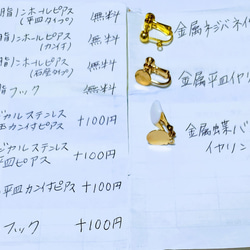 脂ノンホールピアス
(平皿タイプ) 無料
脂ノンホールピアス
(カン付) 無料
脂ノンホールピアス
(石座タイプ) 無料
脂フック 無料
ジカルステンレス
玉カン付ピアス +100円
ジカルステンレス
平皿ピアス +100円
平皿カン付ピアス +100円
フック +100円
金属ネジバネイヤ
金属平皿イヤリ
金属蝶バ
イヤリン